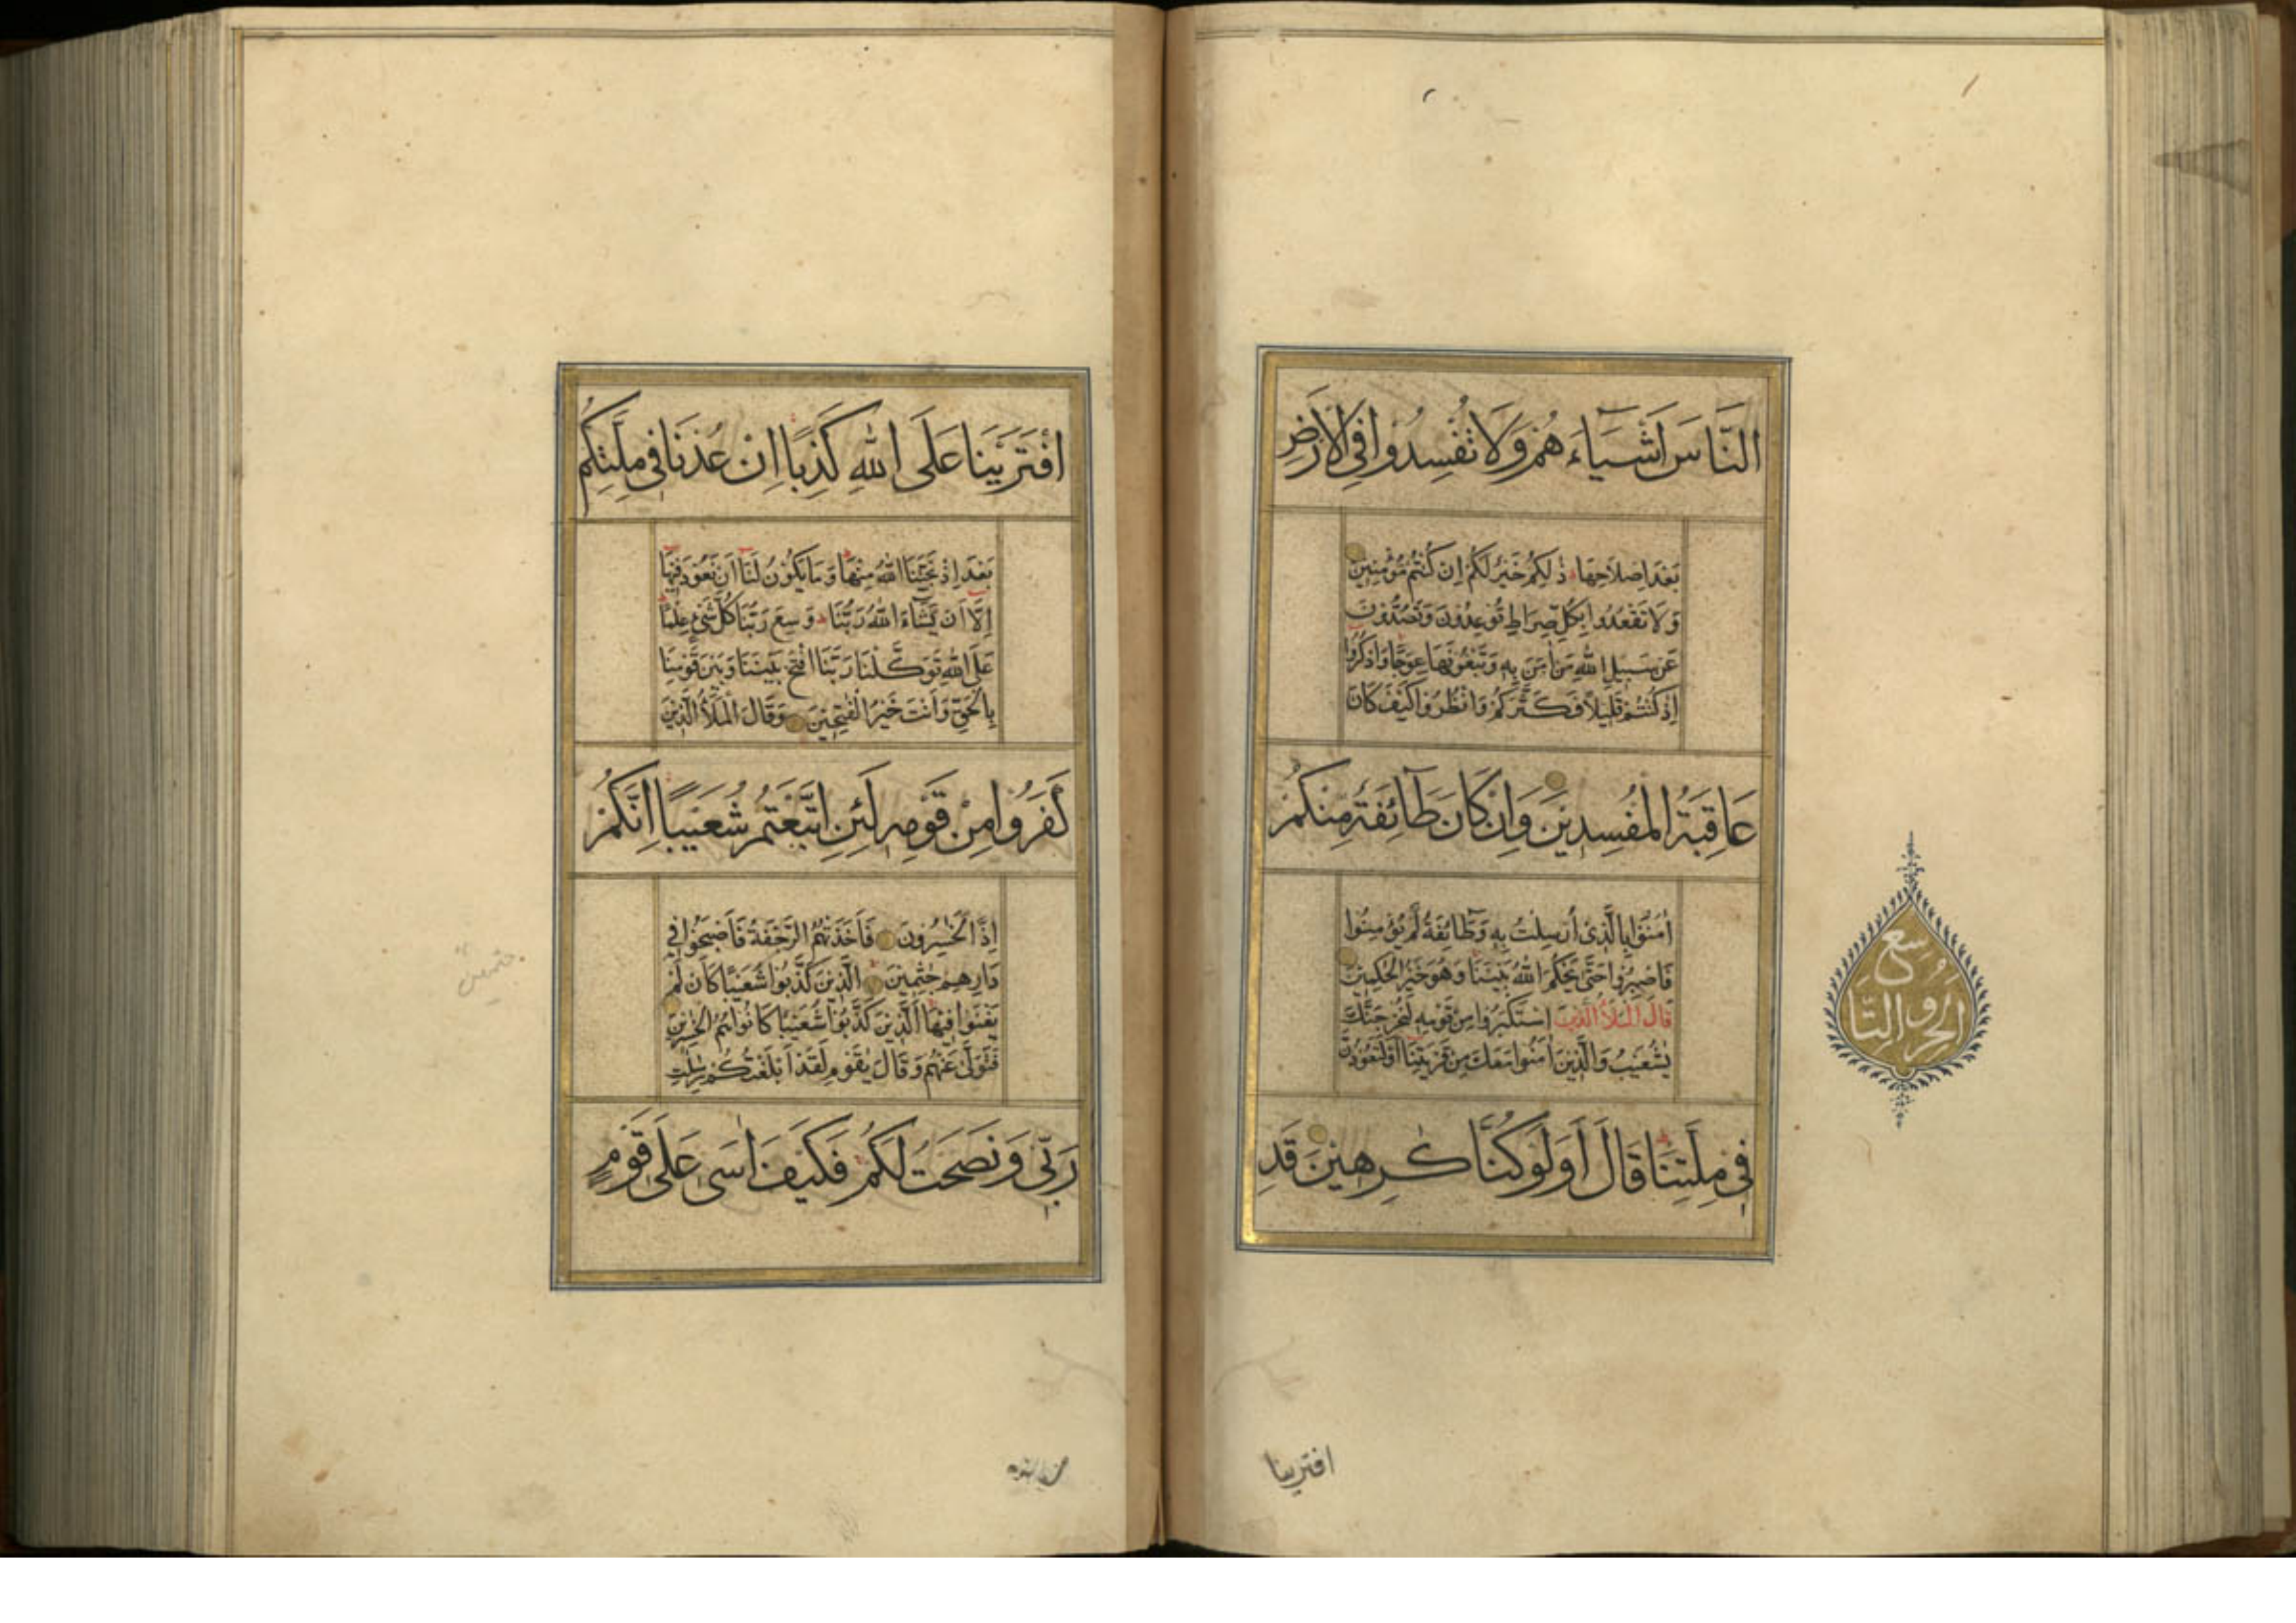 النَّاسَ اَشْيَاءَهُمْ وَلَا تُفْسِدُوا فِي الْاَرْضِ
بَعْدَ اِصْلَاحِهَا ذٰلِكُمْ خَيْرٌ لَكُمْ اِنْ كُنْتُمْ مُؤْمِنِينَ
وَلَا تَقْعُدُوا بِكُلِّ صِرَاطٍ تُوعِدُونَ وَتَصُدُّونَ
عَنْ سَبِيلِ اللّٰهِ مَنْ اٰمَنَ بِهِ وَتَبْغُونَهَا عِوَجًا وَاذْكُرُوا
اِذْ كُنْتُمْ قَلِيلًا فَكَثَّرَكُمْ وَانْظُرُوا كَيْفَ كَانَ
عَاقِبَةُ الْمُفْسِدِينَ وَاِنْ كَانَ طَائِفَةٌ مِنْكُمْ
اٰمَنُوا بِالَّذِي اُرْسِلْتُ بِهِ وَطَائِفَةٌ لَمْ يُؤْمِنُوا
فَاصْبِرُوا حَتّٰى يَحْكُمَ اللّٰهُ بَيْنَنَا وَهُوَ خَيْرُ الْحٰكِمِينَ
قَالَ الْمَلَاُ الَّذِينَ اسْتَكْبَرُوا مِنْ قَوْمِهِ لَنُخْرِجَنَّكَ
يٰشُعَيْبُ وَالَّذِينَ اٰمَنُوا مَعَكَ مِنْ قَرْيَتِنَا اَوْ لَتَعُودُنَّ
فِي مِلَّتِنَا قَالَ اَوَلَوْ كُنَّا كٰرِهِينَ قَدِ
افترينا
سبع
الحروف التا
افْتَرَيْنَا عَلَى اللّٰهِ كَذِبًا اِنْ عُدْنَا فِي مِلَّتِكُمْ
بَعْدَ اِذْ نَجّٰنَا اللّٰهُ مِنْهَا وَمَا يَكُونُ لَنَا اَنْ نَعُودَ فِيهَا
اِلَّا اَنْ يَشَاءَ اللّٰهُ رَبُّنَا وَسِعَ رَبُّنَا كُلَّ شَيْءٍ عِلْمًا
عَلَى اللّٰهِ تَوَكَّلْنَا رَبَّنَا افْتَحْ بَيْنَنَا وَبَيْنَ قَوْمِنَا
بِالْحَقِّ وَاَنْتَ خَيْرُ الْفٰتِحِينَ وَقَالَ الْمَلَاُ الَّذِينَ
كَفَرُوا مِنْ قَوْمِهِ لَئِنِ اتَّبَعْتُمْ شُعَيْبًا اِنَّكُمْ
اِذًا لَخٰسِرُونَ فَاَخَذَتْهُمُ الرَّجْفَةُ فَاَصْبَحُوا فِي
دَارِهِمْ جٰثِمِينَ الَّذِينَ كَذَّبُوا شُعَيْبًا كَاَنْ لَمْ
يَغْنَوْا فِيهَا الَّذِينَ كَذَّبُوا شُعَيْبًا كَانُوا هُمُ الْخٰسِرِينَ
فَتَوَلّٰى عَنْهُمْ وَقَالَ يٰقَوْمِ لَقَدْ اَبْلَغْتُكُمْ رِسٰلٰتِ
رَبِّي وَنَصَحْتُ لَكُمْ فَكَيْفَ اٰسٰى عَلٰى قَوْمٍ